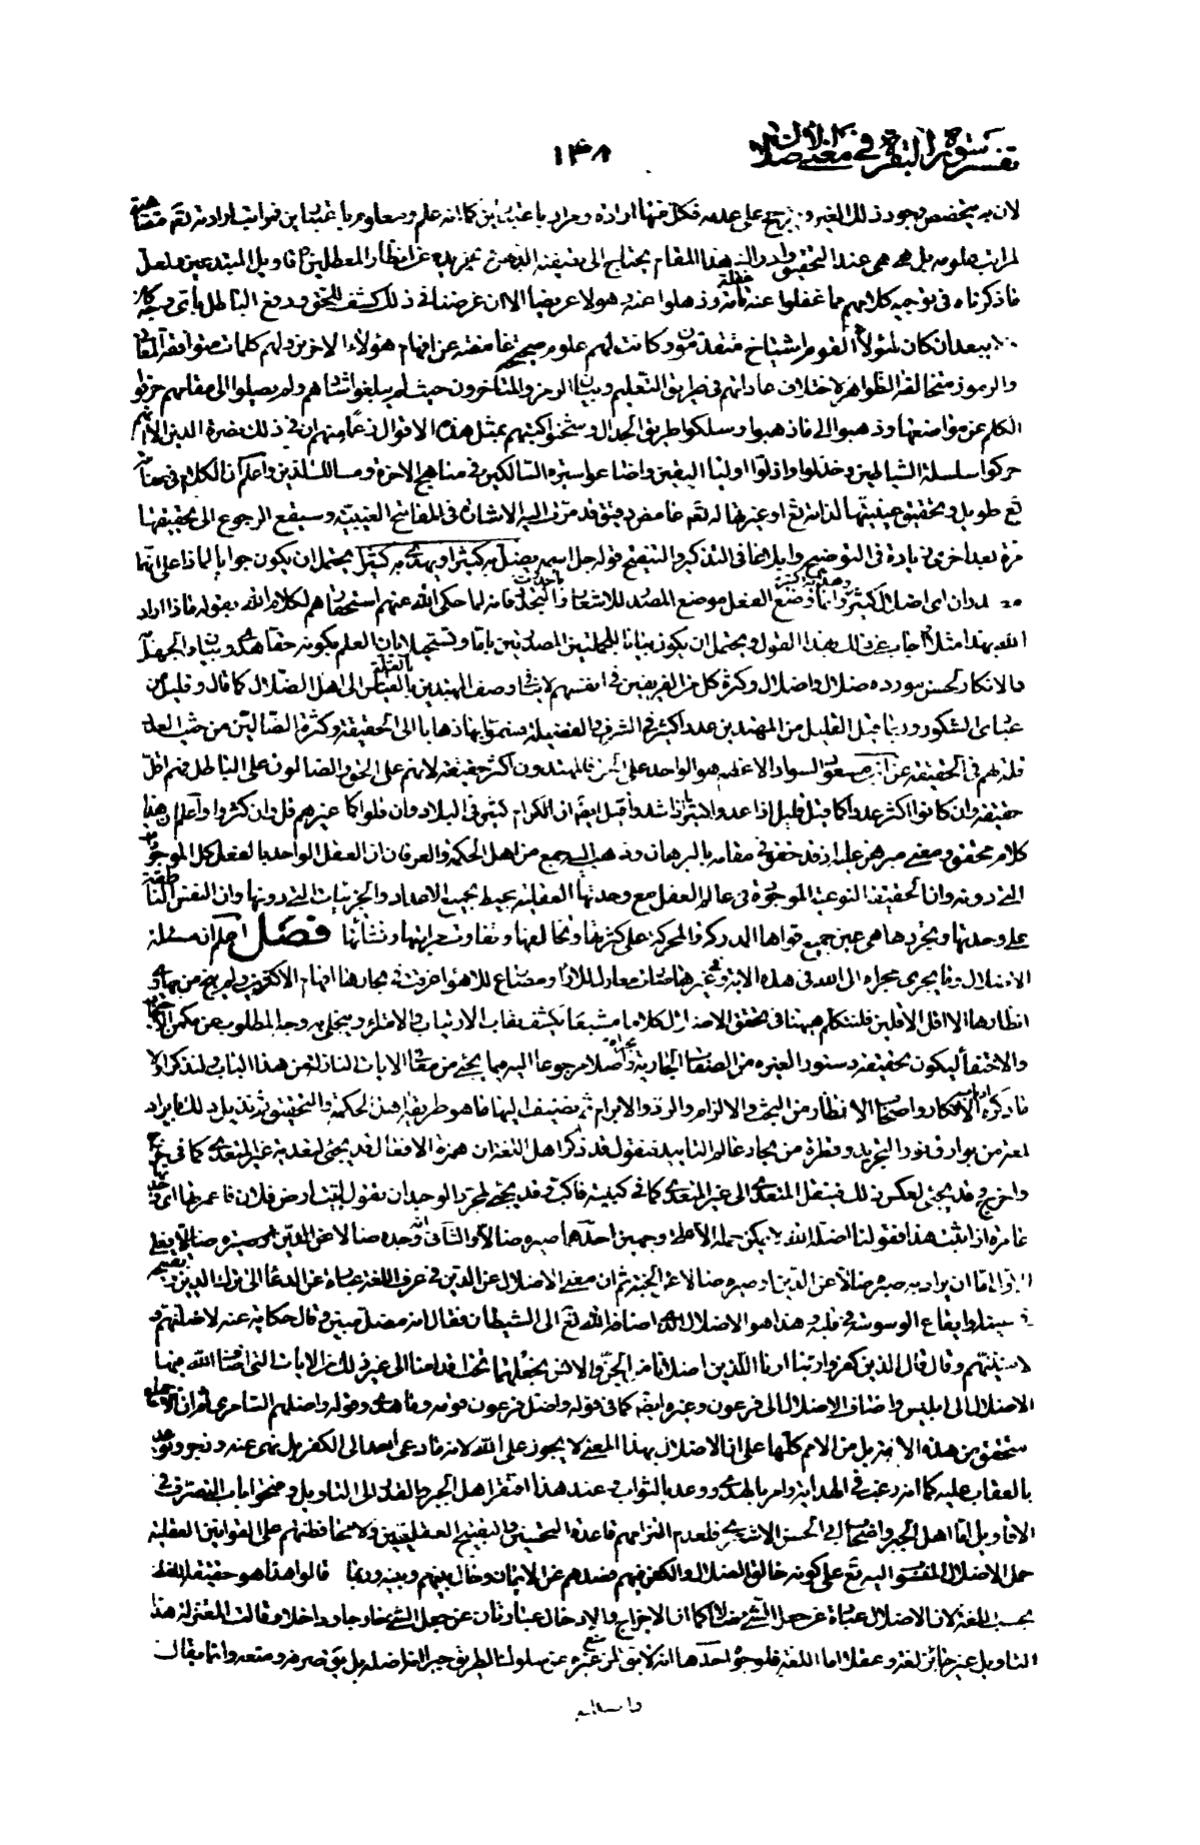 تفسير سورة البقرة في معنى
١٣٨
لان به يتخصص وجود ذلك الغير و يترجح على عدمه فكل منها ارادة ومراد باعتبارين كما انه علم ومعلوم باعتبارين
بل هي هي عند التحقيق هذا المقام يحتاج الى عن انظار المعطلين المبتدعين
ما ذكرناه في توجيه كلامهم مما غفلوا عنه وذهلوا عنه هولاء الا ان غرضنا في ذلك كشف الحق ودفع الباطل باى وجه كان
يبعد ان كان لهؤلاء القوم اشياخ متقدمون وكانت لهم علوم صحيحة غامضة عن افهام هؤلاء الاخرين ولهم كلمات
والرموز مخالفة الظواهر لاختلاف عاداتهم في طريق التعليم وبيان الرمز والمتأخرون حيث لم يبلغوا شاهم ولم يصلوا الى مقامهم حرفوا
الكلم عن مواضعها وذهبوا الى ما ذهبوا وسلكوا طريق الجدال وشحنوا كتبهم بمثل هذه الاقوال زعما منهم ان في ذلك نصرة الدين
حركوا سلسلة الشياطين وخذلوا واذلوا اولياء اليقين واضاعوا سيرة السالكين في مناهج الاخرة ومسالك الدين واعلم ان الكلام في
طويل وتحقيق عينيتها لذاته تع او غيرها له غامض دقيق قد مرت اليه الاشارة في المفاتيح الغيبية وسيقع الرجوع الى تحقيقها
مرة بعد اخرى زيادة في التوضيح وابلاغا في التذكير والتنقيح قوله جل اسمه يضل به كثيرا ويهدى به كثيرا يحتمل ان يكون جوابا لماذا على انها
اى اضلال كثير وهداية كثير وانما وضع الفعل موضع المصدر للاشعار والتجدد فانه لما حكى الله عنهم استحقارهم لكلام الله بقوله ماذا اراد
الله بهذا مثلا اجاب عن ذلك بهذا القول ويحتمل ان يكون بيانا للجملتين المصدرتين باما وتسجيلا بان العلم بكونه حقا هدى وبيان والجهل
بالانكار لحسن مورده ضلال واضلال وكثرة كل من الفريقين في انفسهم لا ينافى وصف المهتدين بالقلة بالقياس الى اهل الضلال كما قال وقليل من
عبادى الشكور وربما قيل القليل من المهتدين عددا كثير في الشرف والفضيلة فسموا بها ذهابا الى الحقيقة وكثرة الضالين من حيث العدد
قلة هم في الحقيقة السواد الاعظم هو الواحد على الحق فالمهتدون اكثر حقيقة لانهم على الحق والضالون على الباطل فهم اقل
حقيقة وان كانوا اكثر عددا كما قيل قليل اذا عدوا كثير اذا شدوا وقيل ايضا ان الكرام كثير في البلاد وان قلوا كما غيرهم قل وان كثروا واعلم ان هذا
كلام محقق ومعنى مبرهن عليه اذ قد حقق في مقامه بالبرهان وذهب اليه جمع من اهل الحكمة والعرفان ان العقل الواحد بالفعل كل الموجودات
التى دونه وان الحقيقة النوعية الموجودة في عالم العقل مع وحدتها العقلية يحيط بجميع الاعداد والجزئيات التى دونها وان النفس الناطقة
على وحدتها وتجردها هي عين جميع قواها المدركة والمحركة على كثرتها وتخالفها وتفاوت مراتبها ونشآتها فصل اعلم ان مسئلة
الاضلال وما يجرى مجراه الى الله في هذه الاية وغيرها صارت معادل للآراء ومصارع للاهواء غرقت في بحارها افهام الاكثرين ولم ينج من
انظارها الا اقل الاقلين فلنتكلم ههنا في تحقيق الاضلال كلاما مشبعا يكشف نقاب الارتياب والافتراء وينجلى به وجه المطلوب عن مكمن
والاختفاء ليكون تحقيقه دستورا لغيره من الصفات الجارية مجراه واصلا مرجوعا اليه فيما يجئ من الايات النازلة من هذا الباب لنذكر اولا
ما ذكره ارباب الافكار واصحاب الانظار من البحث والالزام والرد والابرام ثم نضيف اليها ما هو طريقة اهل الحكمة والتحقيق ثم تذييل ذلك بايراد
لمعة من بوارق نور التجريد وقطرة من بحار عالم التاييد فنقول قد ذكر اهل اللغة ان همزة الافعال قد يجئ لتعدية غير المتعدى كما في خرج
واخرج وقد يجئ لعكس ذلك فينقل المتعدى الى غير المتعدى كما في كببته فاكب وقد يجئ لمجرد الوجدان تقول اتيت ارض فلان فاعمرتها اى وجدتها
عامرة اذا ثبت هذا فقولنا اضله الله لا يمكن حمله الا على وجهين احدهما صيره ضالا والثانى وجده ضالا
اما ان يراد به صيره ضالا عن الدين او صيره ضالا عن الجنة ثم ان معنى الاضلال عن الدين في عرف اللغة عبارة عن الدعاء الى ترك الدين وتقبيحه
وايقاع الوسوسة في قلبه وهذا هو الاضلال الذى اضافه الله تع الى الشيطان فقال انه مضل مبين وقال حكاية عنه لاضلنهم
لامنينهم وقال قال الذين كفروا ربنا ارنا اللذين اضلانا من الجن والانس نجعلهما تحت اقدامنا الى غير ذلك من الايات التى اضاف الله فيها
الاضلال الى ابليس واضاف الاضلال الى فرعون وغيره ايضا كما في قوله واضل فرعون قومه وما هدى وقوله واضلهم السامرى
متحقق من هذه الامة بل من الامم كلها على ان الاضلال بهذا المعنى لا يجوز على الله لانه ما دعى احدا الى الكفر بل نهى عنه وزجر وتوعد
بالعقاب عليه كما انه رغب في الهداية وامر بالهدى ووعد بالثواب وعند هذا افتقر اهل الجبر والقدر الى التاويل وفتحوا باب التصرف في
الاقاويل اما اهل الجبر واصحاب ابى الحسن الاشعرى فلعدم التزامهم قاعدة التحسين والتقبيح العقليين ولا محافظتهم على القوانين العقلية
حمل الاضلال المنسوب اليه تع على كونه خالق الضلال والكفر فيهم فصدهم عن الايمان وحال بينهم وبينه وربما قالوا هذا هو حقيقة اللفظ
بحسب اللغة لان الاضلال عبارة عن جعل الشئ ضالا كما ان الاخراج والادخال عبارتان عن جعل الشئ خارجا وداخلا وقالت المعتزلة هذا
التاويل غير جائز لغة وعقلا اما اللغة فلوجوه احدها انه لا يقال لمن منع غيره عن سلوك الطريق جبرا انه اضله بل يق صرفه ومنعه وانما يقال